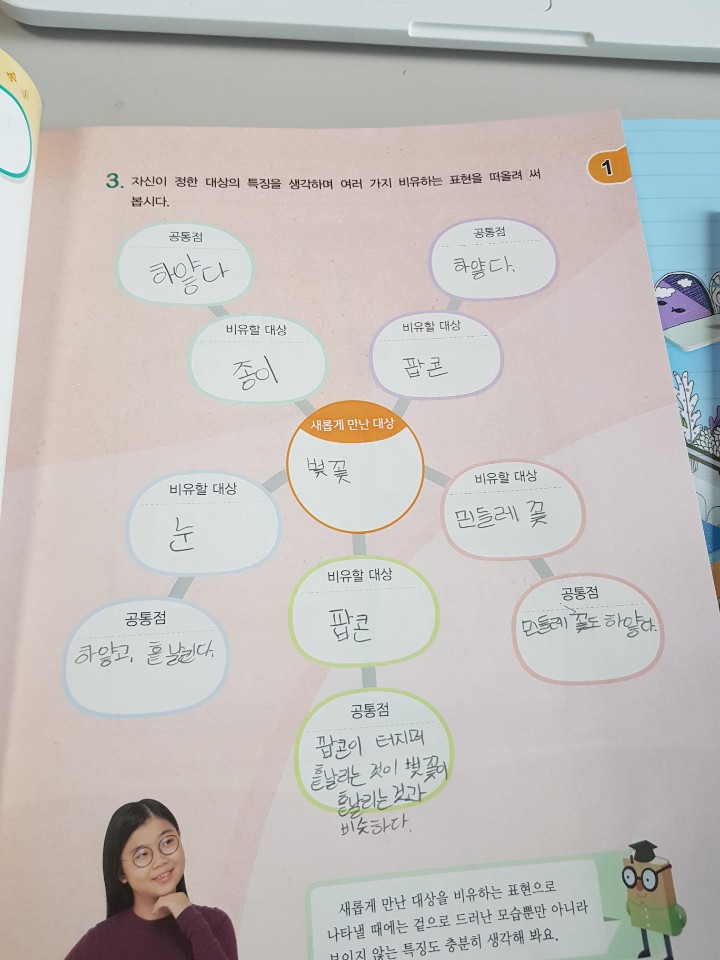 1
3. 자신이 정한 대상의 특징을 생각하며 여러 가지 비유하는 표현을 떠올려 써
봅시다.
공통점
하얗다
공통점
하얗다.
비유할 대상
종이
비유할 대상
팝콘
새롭게 만난 대상
벚꽃
비유할 대상
눈
비유할 대상
민들레 꽃
공통점
하얗고, 흩날린다.
비유할 대상
팝콘
공통점
민들레 꽃도 하얗다.
공통점
팝콘이 터지며
흩날리는 것이 벚꽃이
흩날리는 것과
비슷하다.
새롭게 만난 대상을 비유하는 표현으로
나타낼 때에는 겉으로 드러난 모습뿐만 아니라
보이지 않는 특징도 충분히 생각해 봐요.